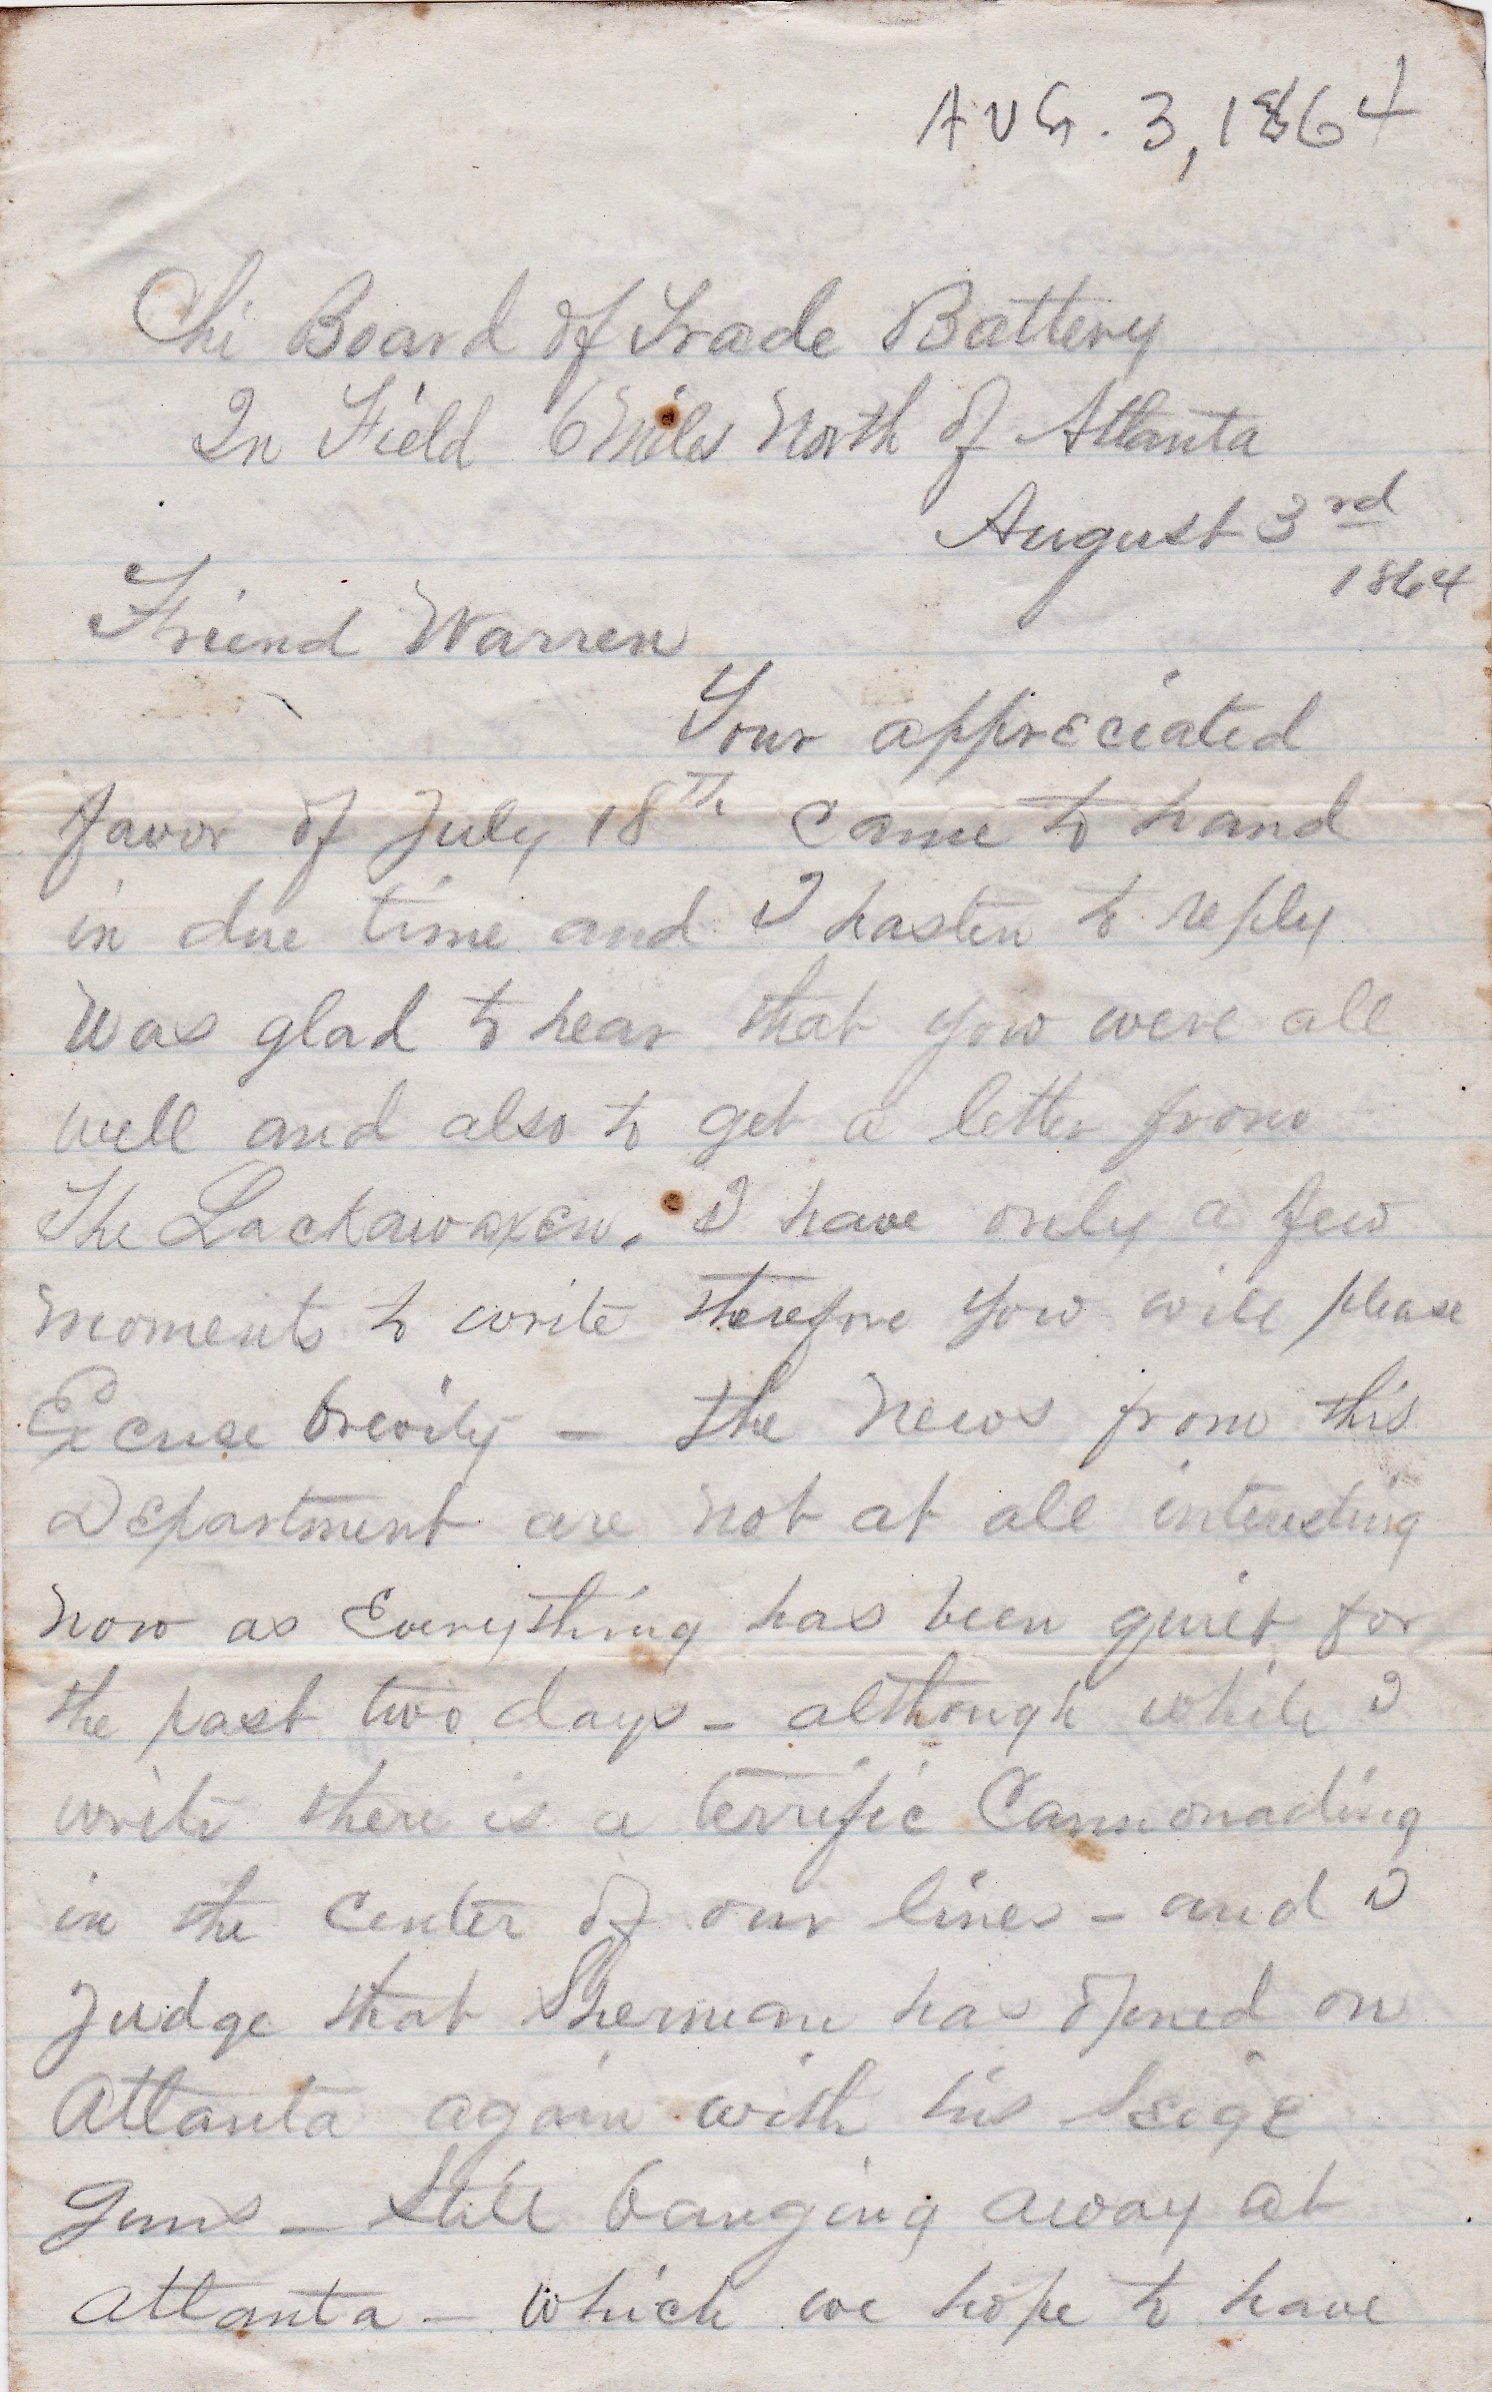 AUG. 3, 1864
Chi Board of Trade Battery
In Field 6 Miles North of Atlanta
August 3rd
1864
Friend Warren
Your appreciated
favor of July 18Th came to hand
in due time and I hasten to reply
Was glad to hear that you were all
well and also to get a letter from
The Lackawaxen. I have only a few
moments to write therefore you will please
Excuse brevity – the News from this
Department are not at all interesting
now as Everything has been quiet for
the past two days – although while I
write there is a terrific Cannonading
in the center of our lines – and I
Judge that Sherman has opened on
Atlanta again with his Seige
guns – Still banging away at
Atlanta – which we hope to have